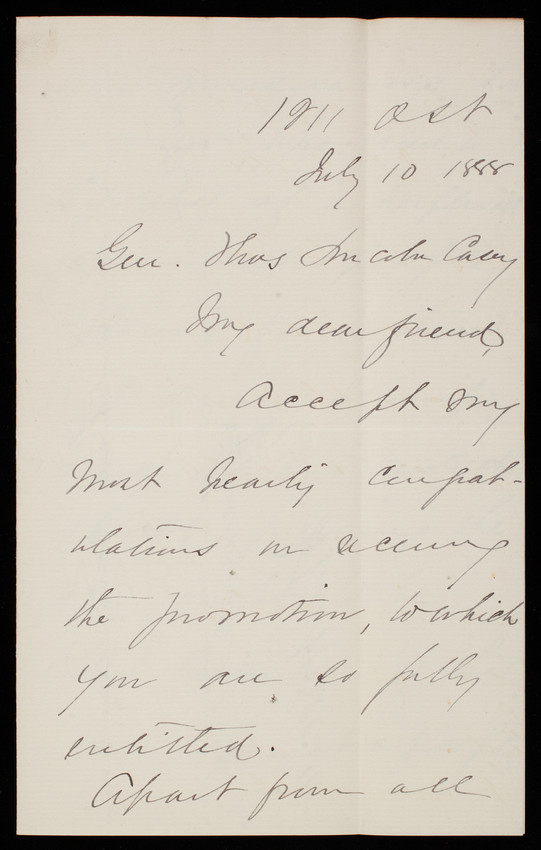 1911 Q St
July 10 1888
Gen. Thos Lincoln Casey
My dear friend,
Accept my
most hearty congrat-
ulations on
the promotion, to which
you are so fully
entitled.
Apart from all